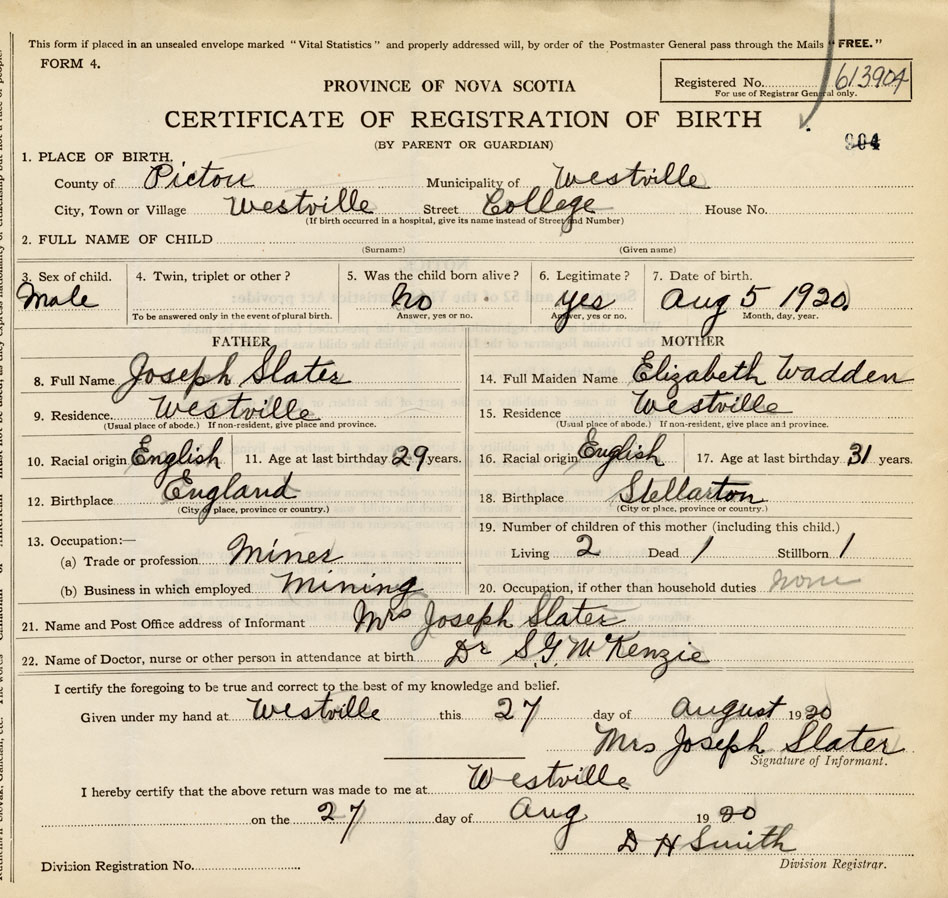 This form if placed in an unsealed envelope marked "Vital Statistics" and properly addressed will, by order of the Postmaster General pass through the Mails "FREE."
FORM 4.
Registered No. 613904
For use of Registrar General only.
PROVINCE OF NOVA SCOTIA
CERTIFICATE OF REGISTRATION OF BIRTH
(BY PARENT OR GUARDIAN)
904
1. PLACE OF BIRTH.
County of Pictou Municipality of Westville
City, Town or Village Westville Street College House No.
(If birth occurred in a hospital, give its name instead of Street and Number)
2. FULL NAME OF CHILD
(Surname) (Given name)
3. Sex of child. 4. Twin, triplet or other? 5. Was the child born alive? 6. Legitimate? 7. Date of birth.
Male no yes Aug 5 1920
To be answered only in the event of plural birth. Answer, yes or no. Answer, yes or no. Month, day, year.
FATHER MOTHER
8. Full Name Joseph Slater 14. Full Maiden Name Elizabeth Wadden
9. Residence. Westville 15. Residence Westville
(Usual place of abode.) If non-resident, give place and province. (Usual place of abode.) If non-resident, give place and province.
10. Racial origin English 11. Age at last birthday 29 years. 16. Racial origin English 17. Age at last birthday 31 years.
12. Birthplace England 18. Birthplace Stellarton
(City or place, province or country.) (City or place, province or country.)
13. Occupation:— 19. Number of children of this mother (including this child.)
(a) Trade or profession Miner Living 2 Dead 1 Stillborn 1
(b) Business in which employed Mining 20. Occupation, if other than household duties none
21. Name and Post Office address of Informant Mrs Joseph Slater
22. Name of Doctor, nurse or other person in attendance at birth Dr S.G. McKenzie
I certify the foregoing to be true and correct to the best of my knowledge and belief.
Given under my hand at Westville this 27 day of August 1920
Mrs Joseph Slater
Signature of Informant.
I hereby certify that the above return was made to me at Westville
on the 27 day of Aug 1920
D H Smith
Division Registration No. Division Registrar.